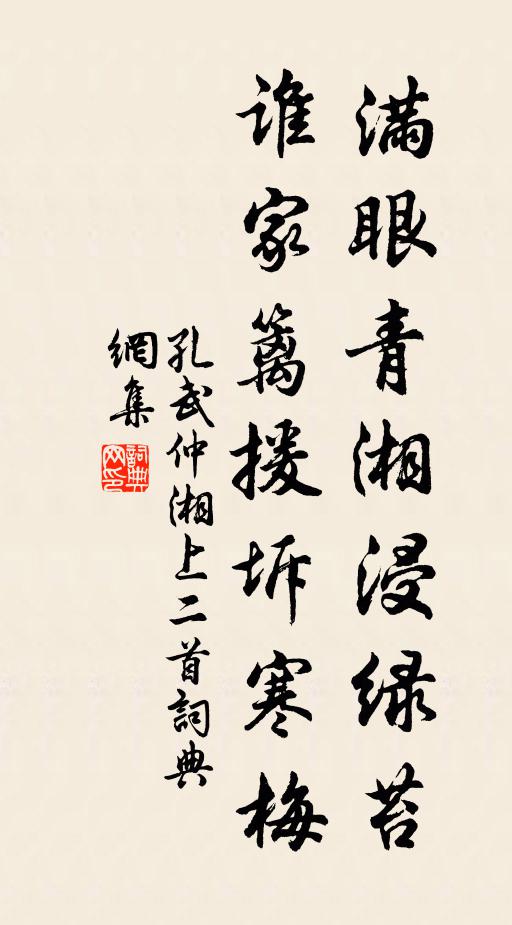 满眼青湘浸绿苔
谁家篱援坼寒梅
孔武仲湘上二首詞典
網集
詞典
网印